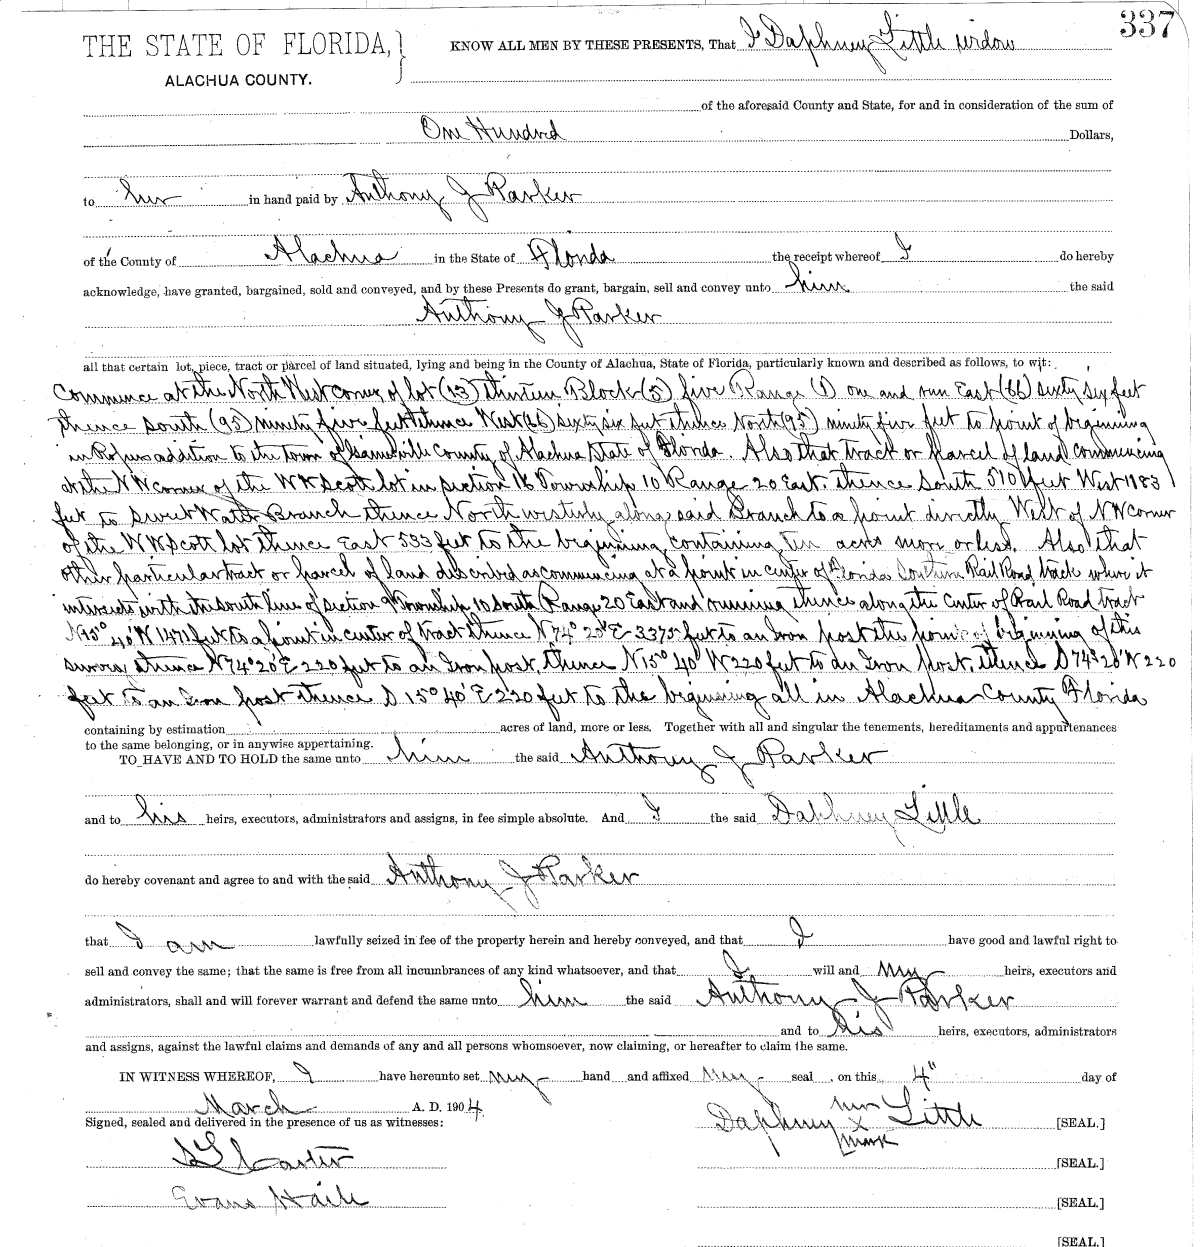 337
THE STATE OF FLORIDA,} KNOW ALL MEN BY THESE PRESENTS, That I Daphney Little widow
ALACHUA COUNTY.
of the aforesaid County and State, for and in consideration of the sum of
One Hundred Dollars,
to her in hand paid by Anthony J Parker
of the County of Alachua in the State of Florida the receipt whereof I do hereby
acknowledge, have granted, bargained, sold and conveyed, and by these Presents do grant, bargain, sell and convey unto him the said
Anthony J Parker
all that certain lot, piece, tract or parcel of land situated, lying and being in the County of Alachua, State of Florida, particularly known and described as follows, to wit:
Commence at the North West corner of lot (13) thirteen Block (5) five Range (1) one and run East (66) sixty six feet
thence South (95) ninety five feet thence West (66) sixty six feet thence North (95) ninety five feet to point of beginning
in addition to the town of Gainesville County of Alachua State of Florida. Also that track or parcel of land commencing
at the NW corner of the W W Scott lot in section 16 Township 10 Range 20 East thence South 510 feet West 1183
feet to Sweet Water Branch thence North westerly along said Branch to a point directly West of NW corner
of the W W Scott lot thence East 533 feet to the beginning containing ten acres more or less. Also that
other particular tract or parcel of land described as commencing at a point in center of Florida Southern Rail Road track where it
intersects with the south line of section 9 Township 10 South Range 20 East and running thence along the center of Rail Road tract
N15° 40' W 1471 feet to a point in center of tract thence N74° 20' E 3375 feet to an Iron post the point of beginning of this
survey thence N74° 20' E 220 feet to an Iron post, thence N15° 40' W 220 feet to an Iron post, thence S 74° 20' W 220
feet to an Iron post thence S 15° 40' E 220 feet to the beginning all in Alachua County Florida
containing by estimation acres of land, more or less. Together with all and singular the tenements, hereditaments and appurtenances
to the same belonging, or in anywise appertaining.
TO HAVE AND TO HOLD the same unto him the said Anthony J Parker
and to his heirs, executors, administrators and assigns, in fee simple absolute. And I the said Daphney Little
do hereby covenant and agree to and with the said Anthony J Parker
that I am lawfully seized in fee of the property herein and hereby conveyed, and that I have good and lawful right to
sell and convey the same; that the same is free from all incumbrances of any kind whatsoever, and that I will and my heirs, executors and
administrators, shall and will forever warrant and defend the same unto him the said Anthony J Parker
and to his heirs, executors, administrators
and assigns, against the lawful claims and demands of any and all persons whomsoever, now claiming, or hereafter to claim the same.
IN WITNESS WHEREOF, I have hereunto set my hand and affixed my seal, on this 4" day of
March A. D. 1904
Signed, sealed and delivered in the presence of us as witnesses:
Daphney her X mark Little [SEAL.]
[SEAL.]
Evans Haile [SEAL.]
[SEAL.]